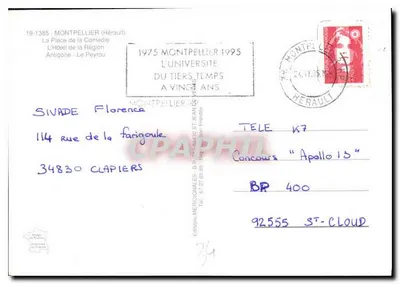 19.1385 - MONTPELLIER (Hérault)
La Place de la Comédie
L'Hôtel de la Région
Antigone - Le Peyrou
1975 MONTPELLIER 1995
L'UNIVERSITE
DU TIERS TEMPS
A VINGT ANS
MONTPELLIER
HERAULT
SIVADE Florence
114 rue de la farigoule
34830 CLAPIERS
TELE K7
Concours "Apollo 13"
BP 400
92555 ST-CLOUD
CPARPHIL